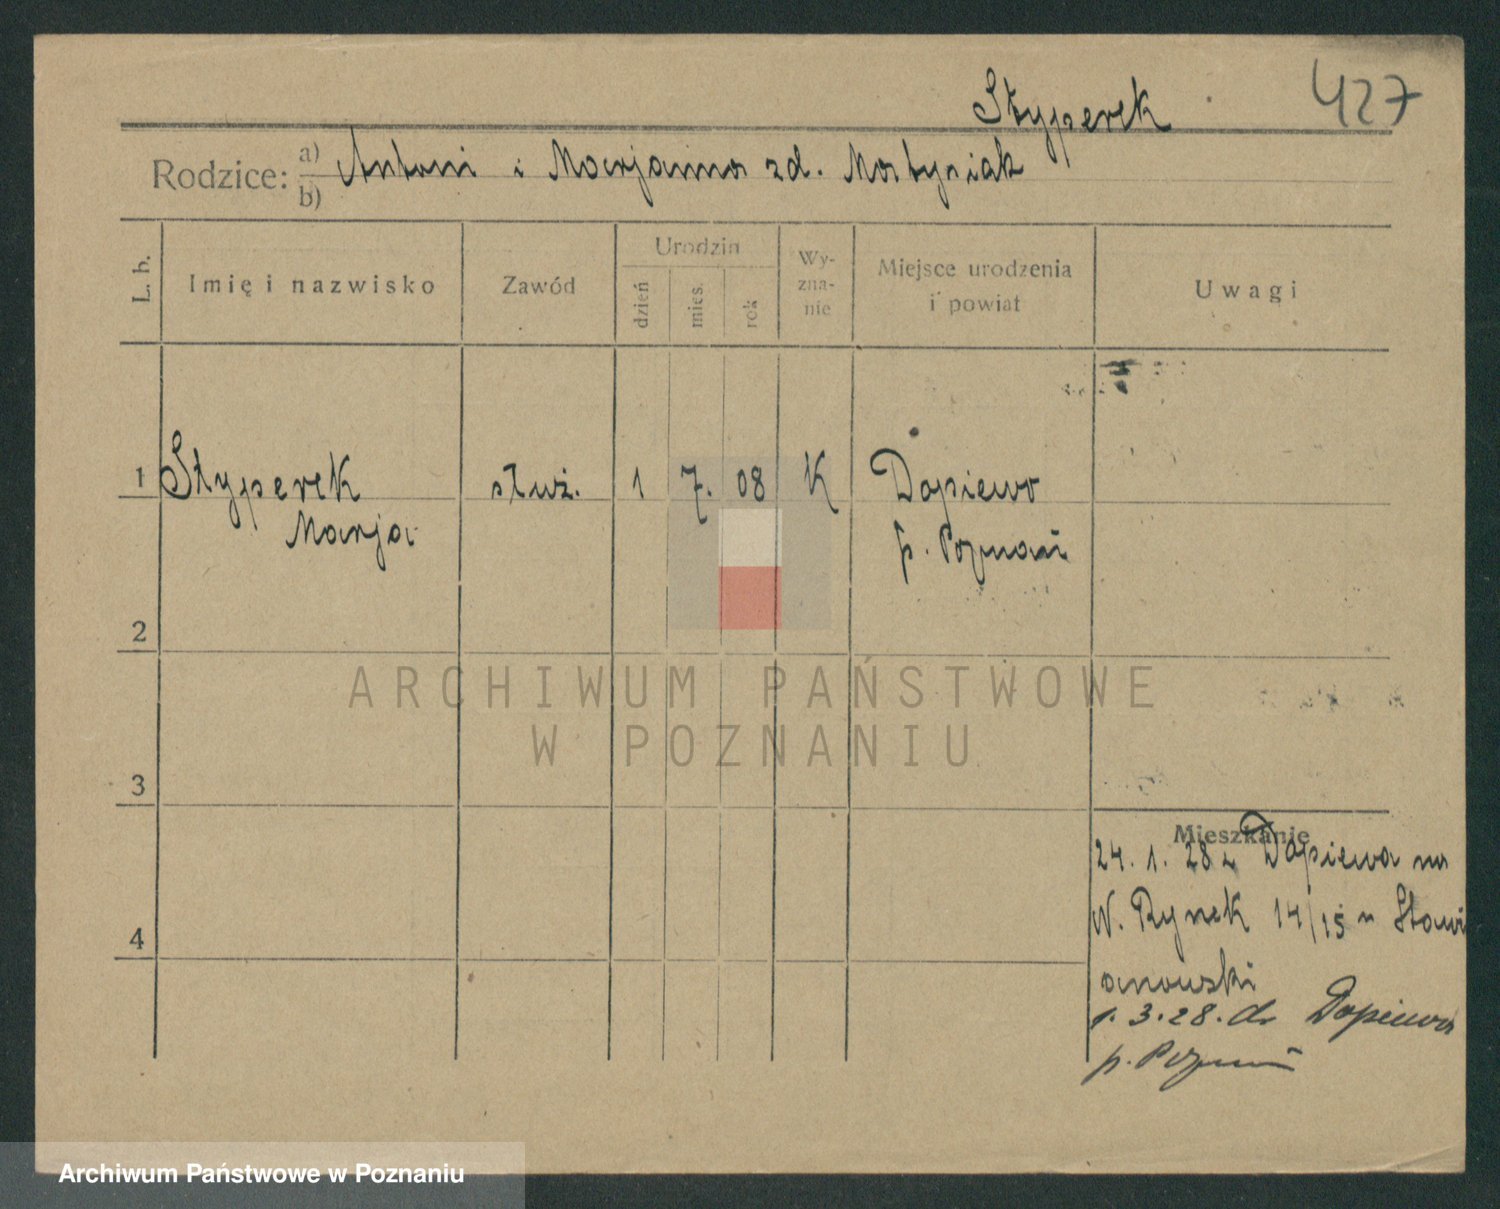 Styperek 427
Rodzice: a) Antoni i Marjanna zd. Matysiak
b)
L. b. Imię i nazwisko Zawód Urodzin dzień mies. rok Wy-zna-nie Miejsce urodzenia i powiat Uwagi
1 Styperek służ. 1 7. 08 K Dopiewo
Marja p. Poznań
2
ARCHIWUM PAŃSTWOWE
W POZNANIU
3
Mieszkanie
24. 1. 28 z Dopiewa na
W. Rynek 14/15 u Słowi
4
anowski
1. 3. 28. do Dopiewa
p. Poznań
Archiwum Państwowe w Poznaniu